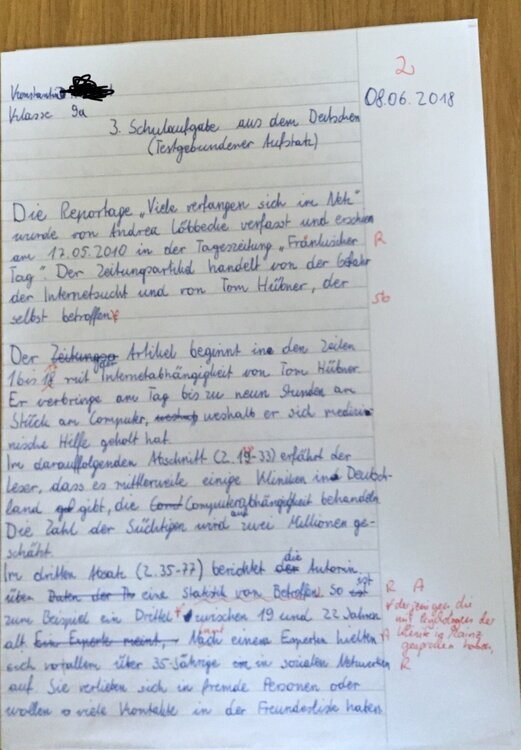 2
Konstantin
08.06.2018
Klasse 9a
3. Schulaufgabe aus dem Deutschen
(Textgebundener Aufsatz)
Die Reportage „Viele verfangen sich im Netz"
wurde von Andrea Löbbecke verfasst und erschien
am 17.05.2010 in der Tageszeitung „Fränkischer R
Tag". Der Zeitungsartikel handelt von der Gefahr
der Internetsucht und von Tom Hübner, der Sb
selbst betroffen
Der Artikel beginnt in den Zeilen
1 bis 18 mit der Internetabhängigkeit von Tom Hübner
Er verbringe am Tag bis zu neun Stunden am
Stück am Computer, weshalb er sich medizi-
nische Hilfe geholt hat.
Im darauffolgenden Abschnitt (Z. 19-33) erfährt der
Leser, dass es mittlerweile einige Kliniken in Deutsch-
land gibt, die Computerabhängigkeit behandeln
Die Zahl der Süchtigen wird auf zwei Millionen ge-
schätzt.
Im dritten Absatz (Z. 35-77) berichtet die Autorin
über eine Statistik von Betroffen. So ist R A
zum Beispiel ein Drittel zwischen 19 und 22 Jahren
alt. Nach einem Experten hielten A
sich vor allem über 35-Jährige in sozialen Netwerken R
auf. Sie verlieben sich in fremde Personen oder
wollen so viele Kontakte in der Freundesliste haben
derjenigen die
mit Psychologen der
Klinik in Mainz
gesprochen haben,